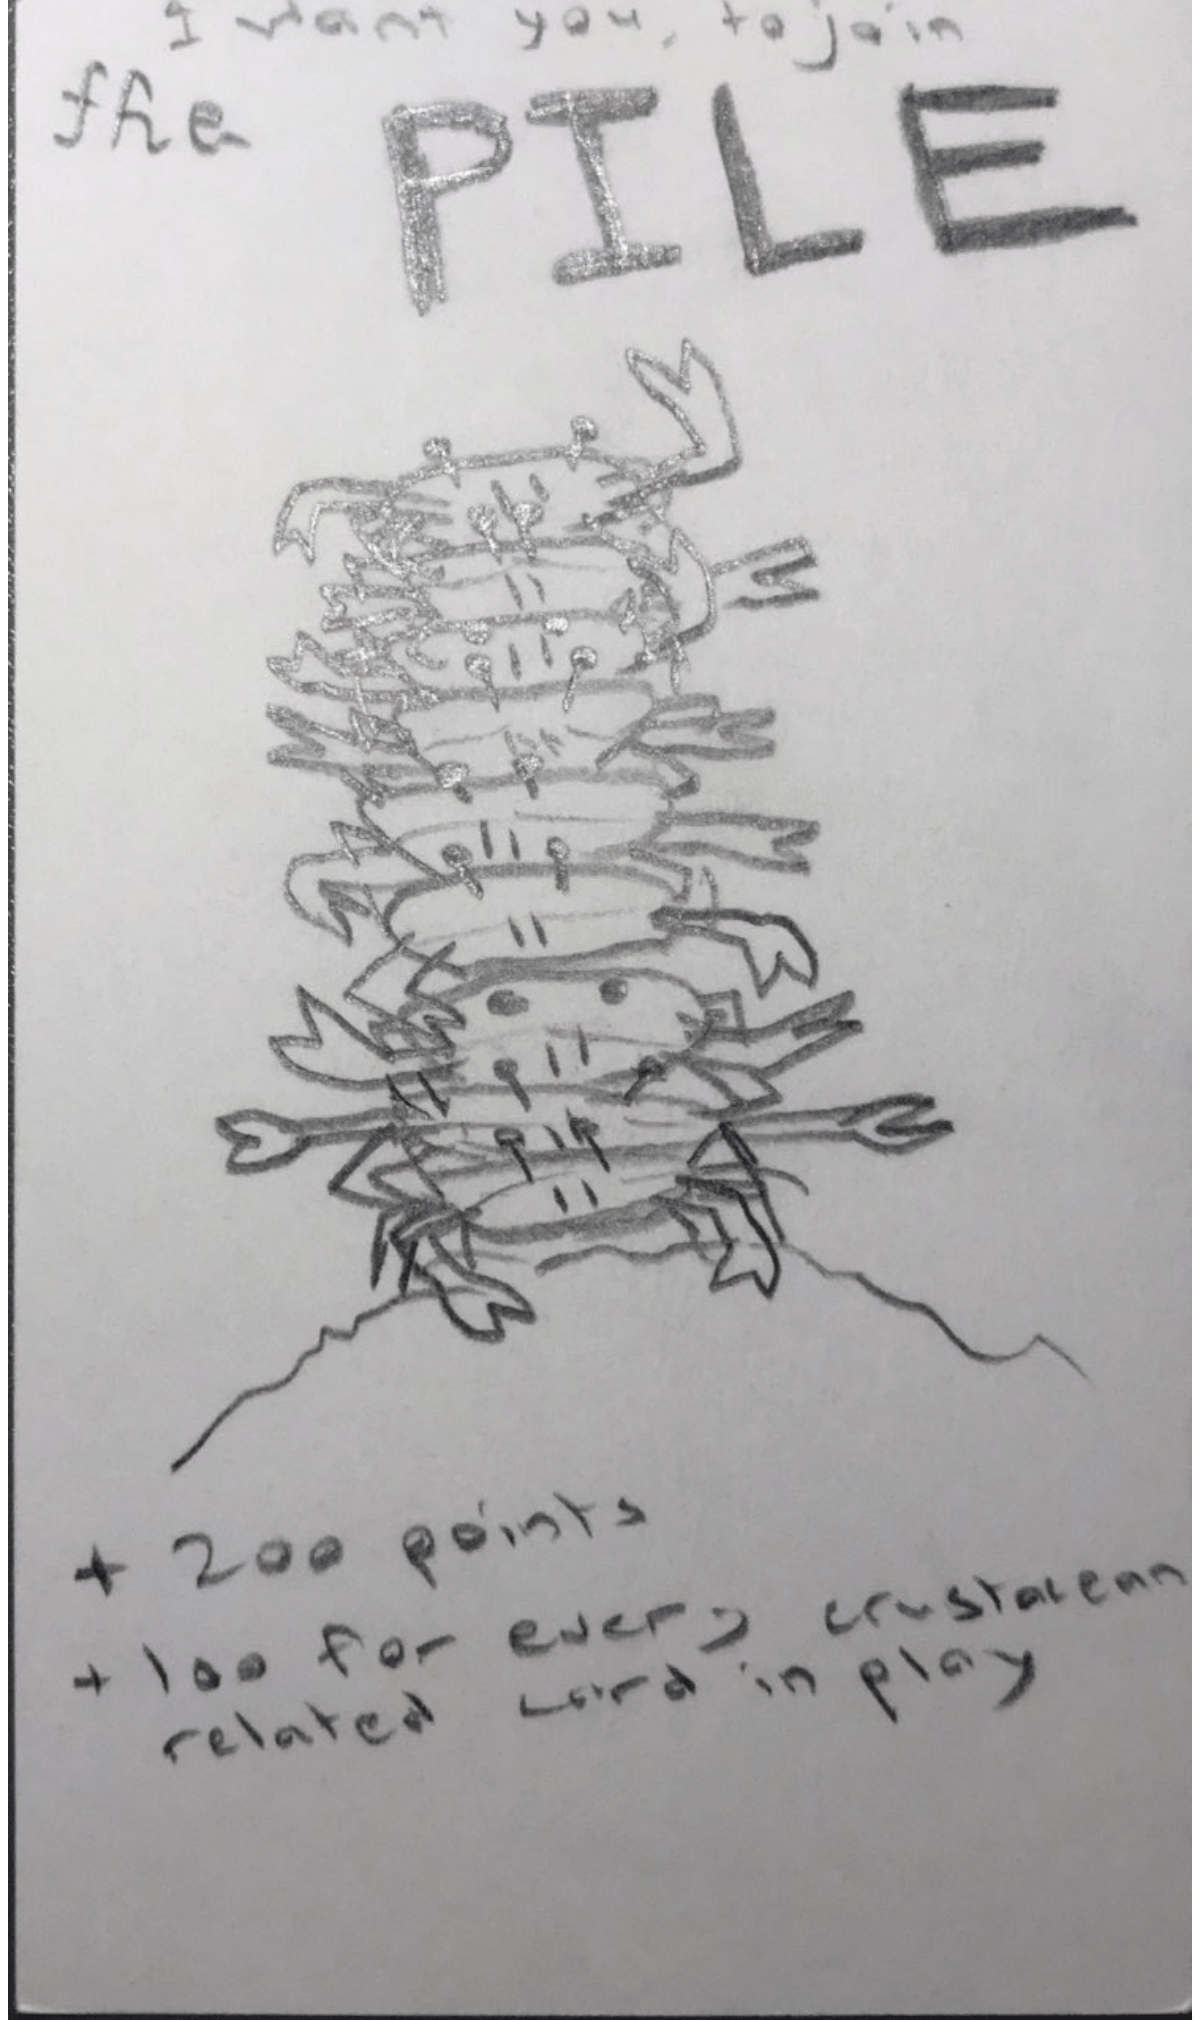 I want you, to join
the PILE
+ 200 points
+ 100 for every crustacean
related card in play